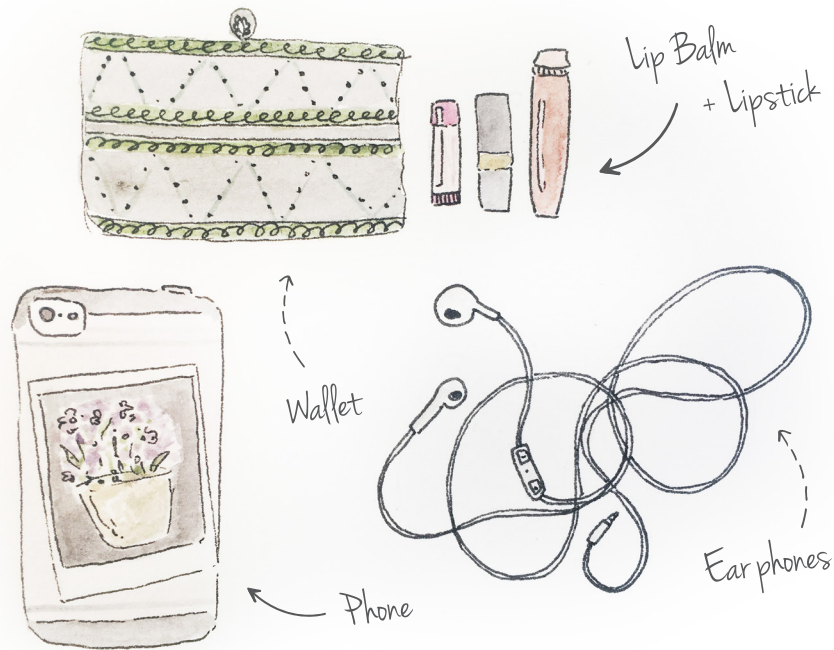 Lip Balm
+ Lipstick
Wallet
Earphones
Phone